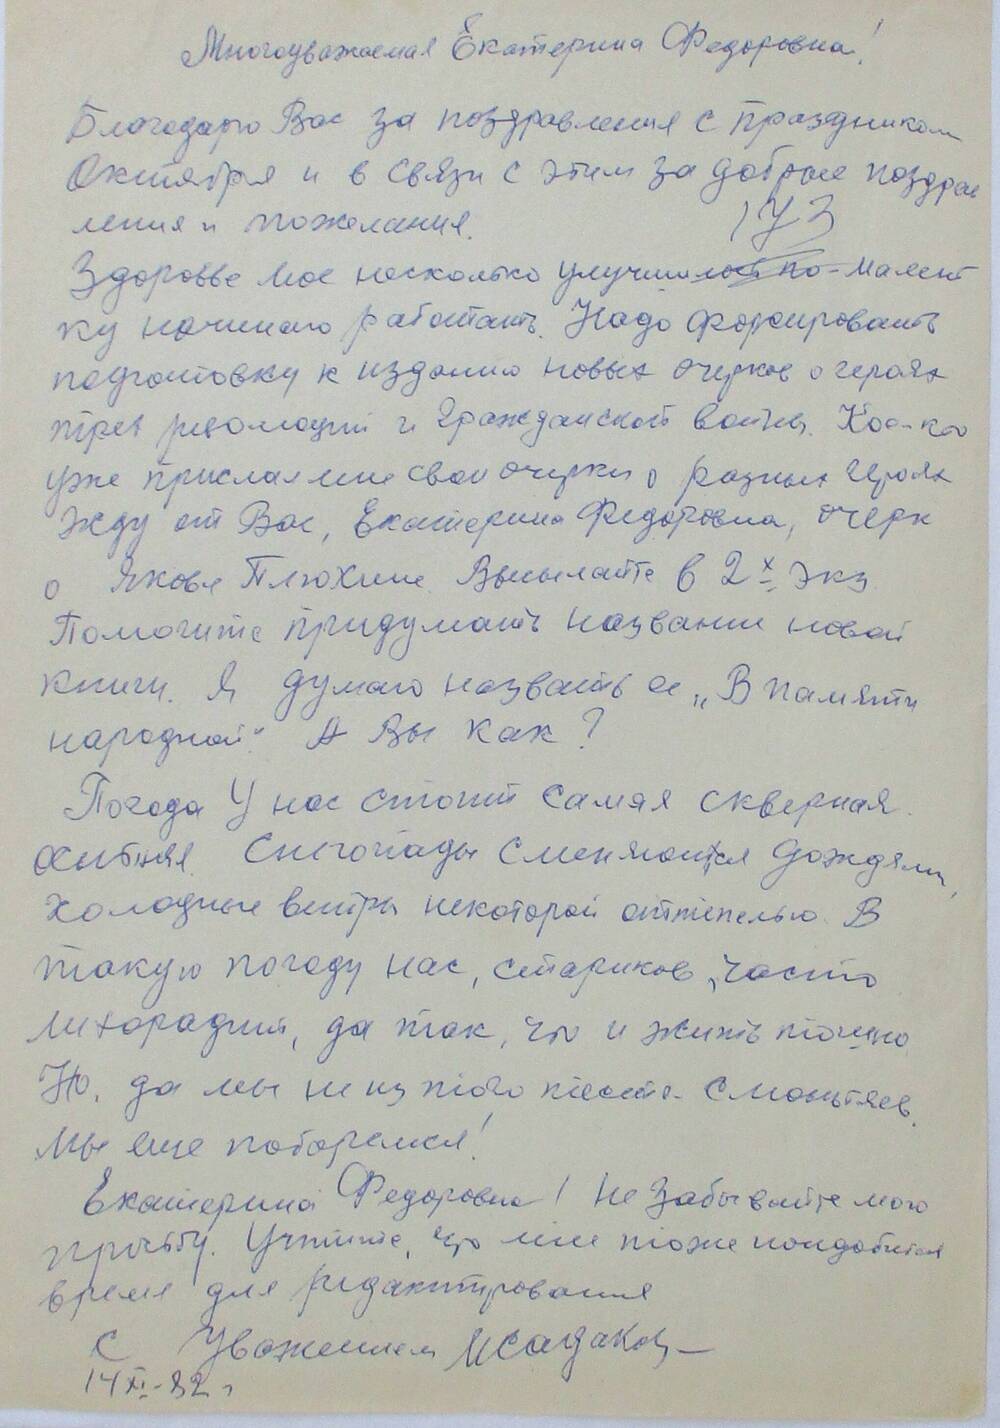 Многоуважаемая Екатерина Федоровна!
Благодарю Вас за поздравления с праздником
Октября и в связи с этим за добрые поздрав
ления и пожелания.
Здоровье мое несколько улучшилось по-малень
ку начинаю работать. Надо форсировать
подготовку к изданию новых очерков о героях
трех революций и Гражданской войны. Кое-кто
уже прислал мне свои очерки о разных героях
Жду от Вас, Екатерина Федоровна, очерк
о Якове Плюхине. Высылайте в 2х экз.
Помогите придумать название новой
книги. Я думаю назвать ее „В памяти
народной". А Вы как?
Погода у нас стоит самая скверная.
Снегопады сменяются дождями,
холодные ветры некоторой оттепелью. В
такую погоду нас, стариков, часто
лихорадит, да так, что и жить тошно.
Но, да мы не из того теста
Мы еще поборемся!
Екатерина Федоровна! Не забывайте мою
просьбу. Учтите, что мне тоже понадобится
время для редактирования
С уважением ИСадаков
14 XI-82 г